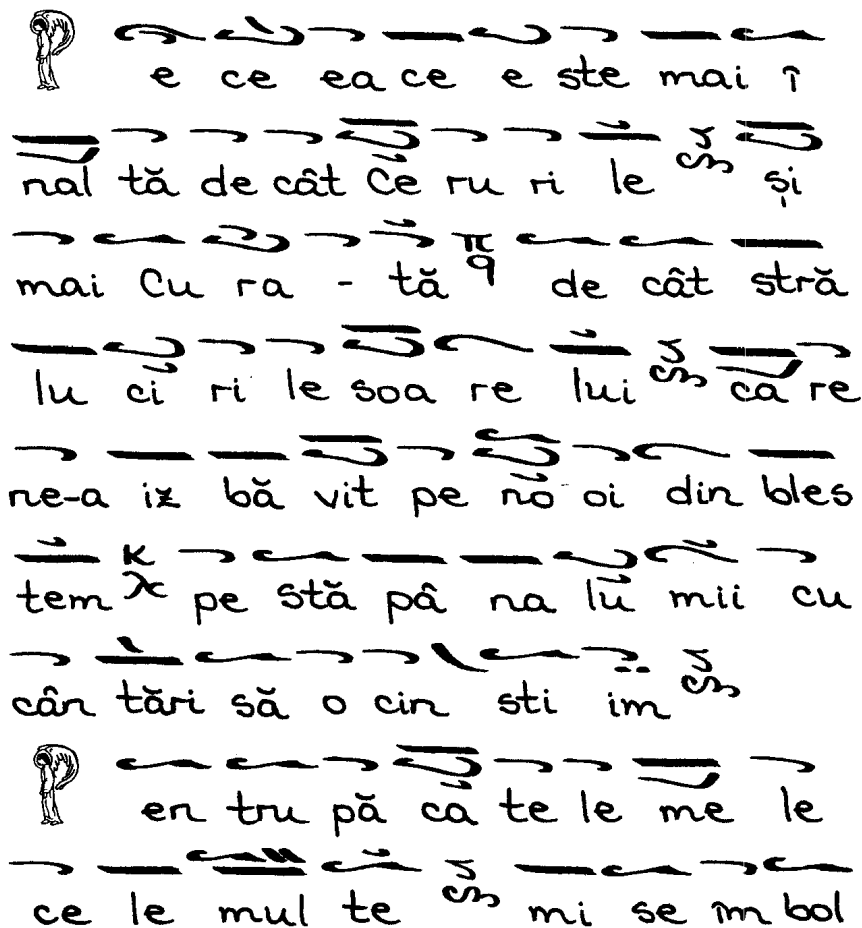 P e ce ea ce e ste mai î
nal tă de cât Ce ru ri le și
mai Cu ra - tă de cât stră
lu ci ri le soa re lui ca re
ne-a iz bă vit pe no oi din bles
tem pe stă pâ na lu mii cu
cân tări să o cin sti im
P en tru pă ca te le me le
ce le mul te mi se îm bol